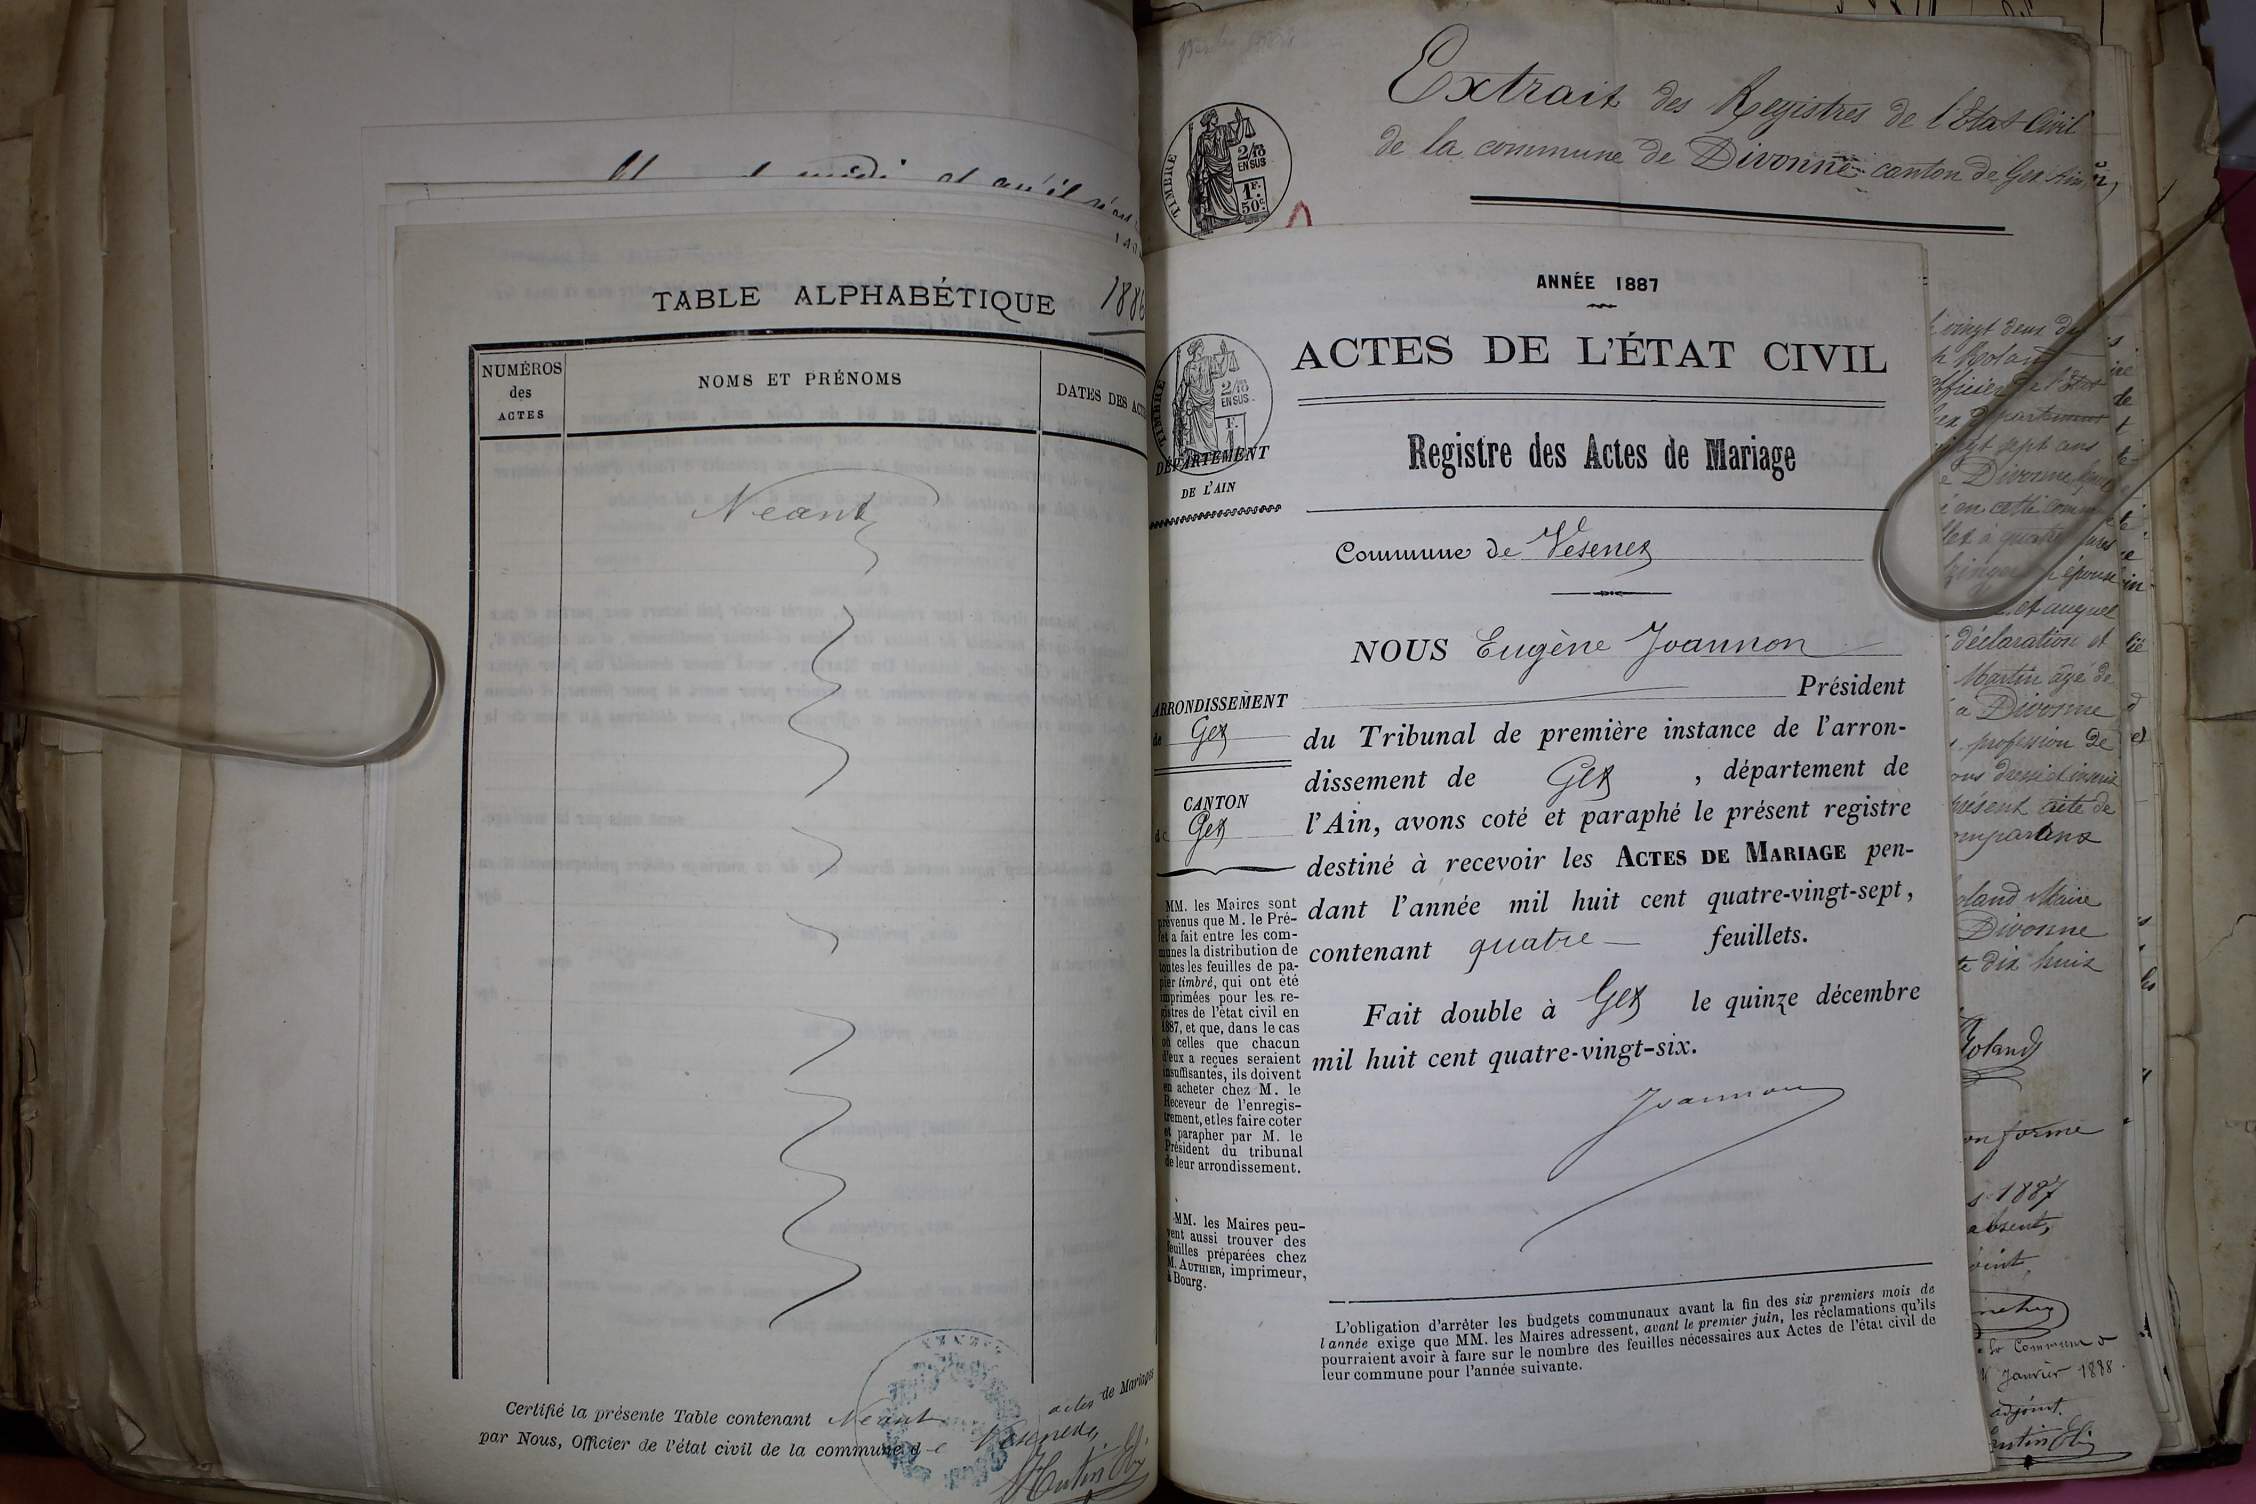 TABLE ALPHABÉTIQUE
NUMÉROS
des
ACTES
NOMS ET PRÉNOMS
DATES DES ACT
Néant
Certifié la présente Table contenant Néant actes de Mariages
par Nous, Officier de l'état civil de la commune de Vesenex
Extrait des Registres de l'Etat Civil
de la commune de Divonne canton de Gex Ain
TIMBRE
2/10
EN SUS
1F.
50c.
ANNÉE 1887
ACTES DE L'ÉTAT CIVIL
TIMBRE
2/10
EN SUS
DÉPARTEMENT
DE L'AIN
Registre des Actes de Mariage
Commune de Vesenex
NOUS Eugène Joannon
Président
du Tribunal de première instance de l'arron-
dissement de Gex, département de
l'Ain, avons coté et paraphé le présent registre
destiné à recevoir les ACTES DE MARIAGE pen-
dant l'année mil huit cent quatre-vingt-sept,
contenant quatre feuillets.
Fait double à Gex le quinze décembre
mil huit cent quatre-vingt-six.
Joannon
ARRONDISSEMENT
de Gex
CANTON
de Gex
MM. les Maires sont
prévenus que M. le Pré-
fet a fait entre les com-
munes la distribution de
toutes les feuilles de pa-
pier timbré, qui ont été
imprimées pour les re-
gistres de l'état civil en
1887, et que, dans le cas
où celles que chacun
d'eux a reçues seraient
insuffisantes, ils doivent
en acheter chez M. le
Receveur de l'enregis-
trement, et les faire coter
et parapher par M. le
Président du tribunal
de leur arrondissement.
MM. les Maires peu-
vent aussi trouver des
feuilles préparées chez
M. AUTHIER, imprimeur,
à Bourg.
L'obligation d'arrêter les budgets communaux avant la fin des six premiers mois de
l'année exige que MM. les Maires adressent, avant le premier juin, les réclamations qu'ils
pourraient avoir à faire sur le nombre des feuilles nécessaires aux Actes de l'état civil de
leur commune pour l'année suivante.
vingt deux du
Roland
officier de l'Etat
département
vingt sept ans
Divonne
en cette commune
à quatre heures
épouse
et auquel
déclaration et
Martin agé de
à Divonne
profession de
présent acte de
comparans
Roland Maire
Divonne
dix huit
Roland
conforme
1887
absent,
adjoint,
Commune
Janvier 1888
adjoint.